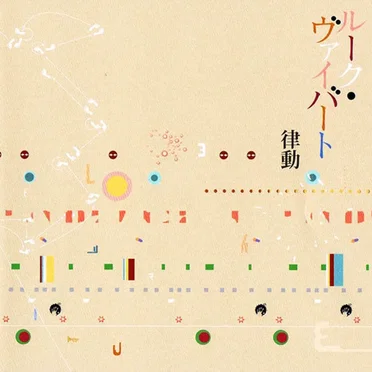 ルーク・
ヴァイバート
律動